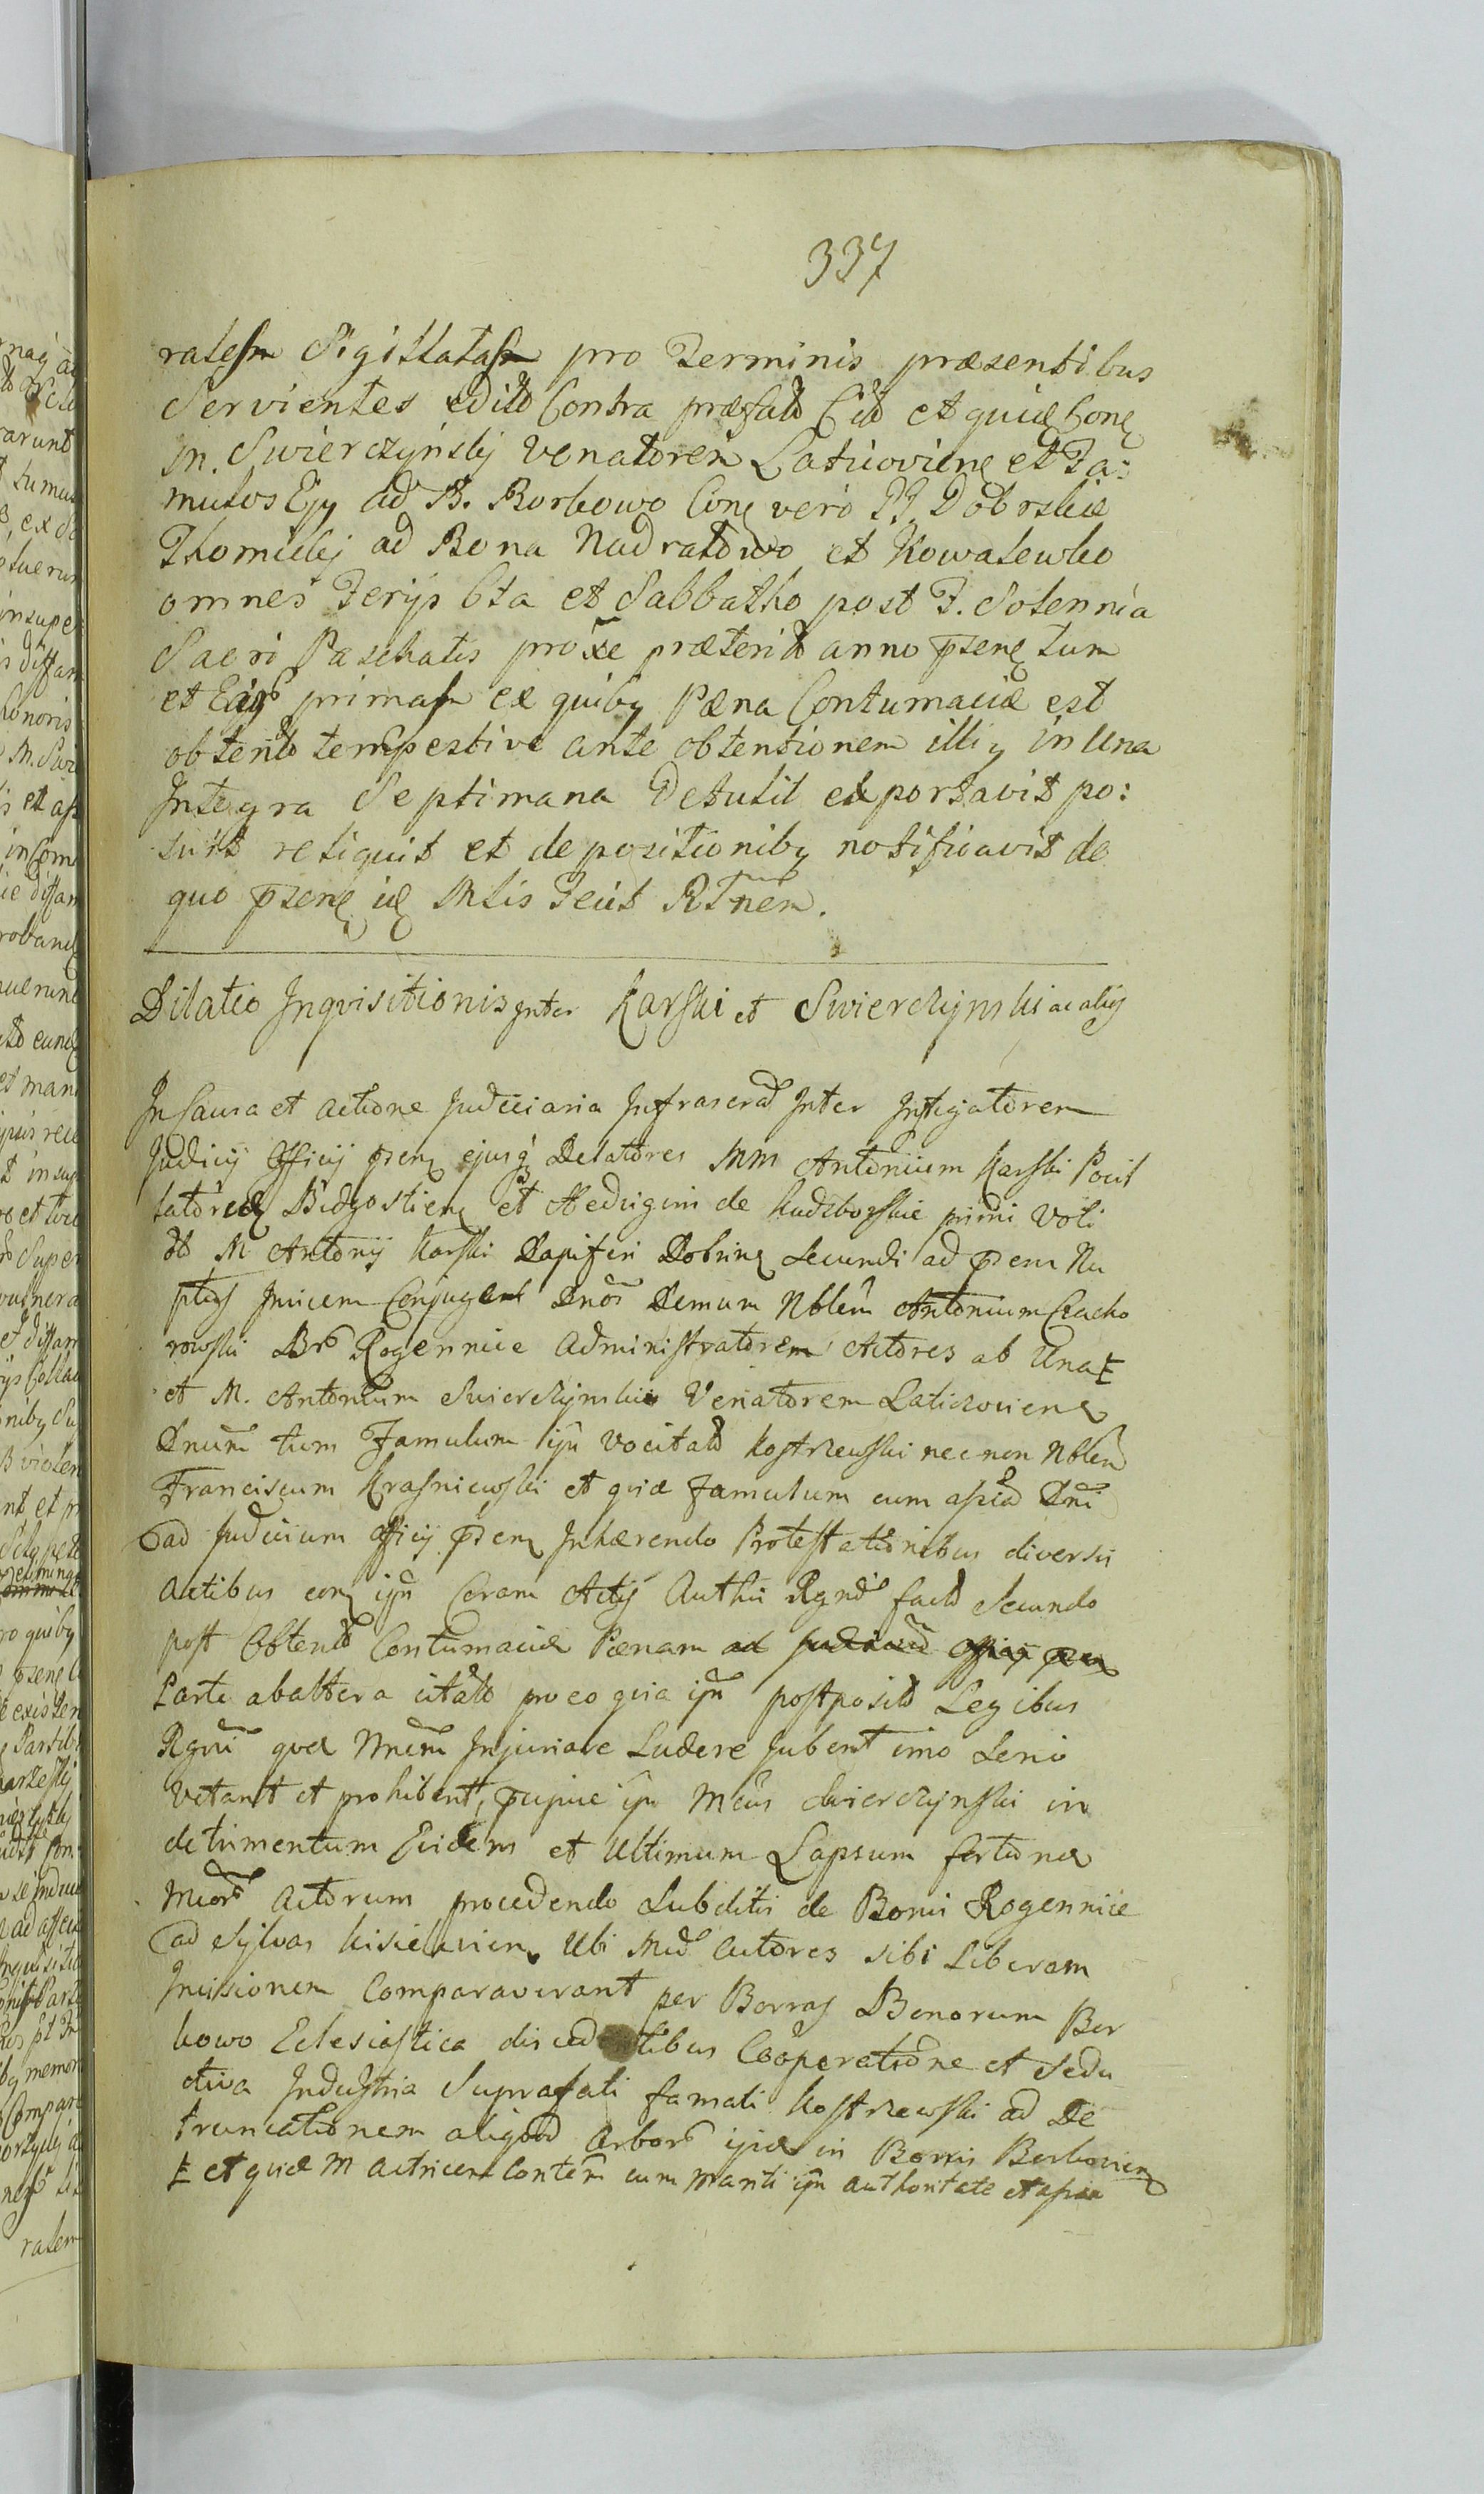 337
ralem Sigillatam pro Terminis præsentibus
Servientes edito Contra præfato Citō et quidē Conę
M. Swierczynski Venatorem Laticoviensę et Fa:
mulos Ejg ad B. Borkowo Conę vero Dobrskie
Thomickij ad Bona Nadratowo et Kowalewko
omnes Ferijs 6ta et Sabbatho post F. Solennia
Sacri Paschatis proxe præterito anno pnsenę tum
et primam ex quibg Pæna Contumaciæ est
obtenta tempestive ante obtentionem illig in Una
Integra Septimana Detulit exportavit po:
suit reliquit et de positionibg notificavit de
quo pnsenę Mlis Fecit Rtnem.
Dilatio Inqvisitionis Inter Karski et Swierczynski ac alios
In Causa et actione Judiciaria Infrascrā Inter Instigatorem
Judicij Officij psenę ejusq Delatores MM Antonium Karski
Bidgostienę et Hedvigim de Kuczborskie primi Voti
M Antonij Karski Dapiferi Dobrinę Secundi ad psens Nu
ptias Invicem Conjuges Dnos Demum Nblem Antonium Czacho
rowski Bro Rogennice Administratorem Actores ab Una Ɛ
et M. Antonium Swierczynski Venatorem Laticzoviensę
Dnum tum Famulum ipn vocitato Kostrzewski necnon Nblem
Franciscum Krasniewski et qvæ Famulum cum assiā Dni
ad Judicium officij psenę Inhærendo Protestationibus diversis
actibus conę ipn Coram Actis Authis Rgni facto Secundo
post Obtentō Contumaciæ Pænam ad Judicium officij psen
Parte ab altera citato pro eo qvia ipn postposito Legibus
Rgni qvæ Nnem Injuriare Ludere Jubent imo Serio
vetant et prohibent, ipn Mcus Swierczynski in
detrimentum Evidens et Ultimum Lapsum fortunæ
Mcorū Actorum procedendo Subditis de Bonis Rogennice
ad Sylvas Kisielevienę Ubi Mcd Actores sibi Liberam
Incisionem Comparaverant per Borras Bonorum Bor
kowo Eclesiastica discedentibus Cooperatione et Sedu
ctiva Industria Suprafati famati Kostrzewski ad De
truncationem aliqvod Arboro ipiæ in Borris Borkovienę
Ɛ et qvæ M Actricem Contem cum Mariti ipn authoritate et assia